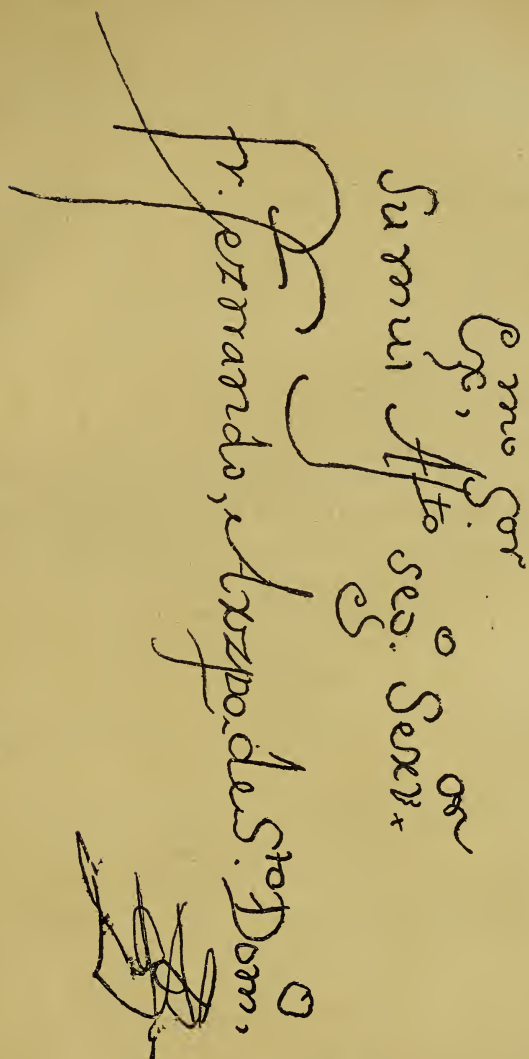 Exmo. Sor
Su mui Afto seg.o Serv.or
Fr. Fernando, Arzpo. de Sto. Dom.o